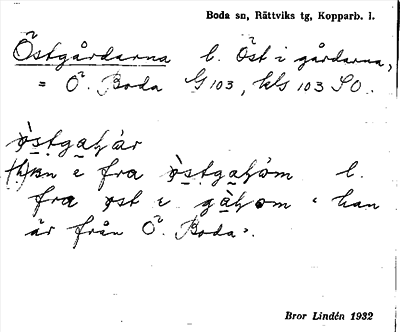 Boda sn, Rättviks tg, Kopparb. l.
Östgårdarna l. Öst i gårdarna,
= Ö. Boda G 103, kls 103 SO.
(h)an e fra l.
fra ost i " han
är från Ö. Boda".
Bror Lindén 1932